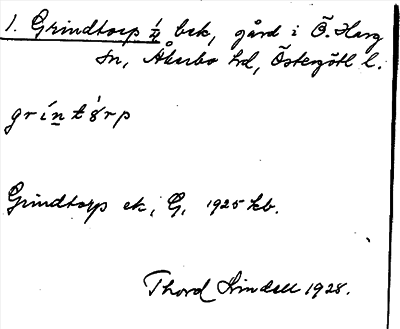 1. Grindtorp 1/2 bek, gård i Ö. Harg
sn, Åkerbo hd, Östergötl l.
gríntòrp
Grindtorp ek, G, 1925 kb.
Thord Lindell 1928.